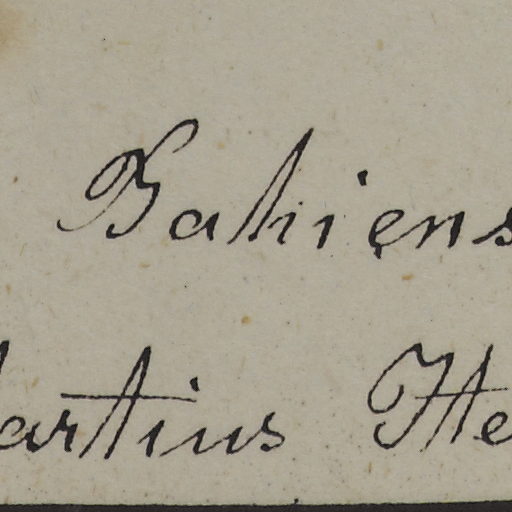 Bahiens
artius He